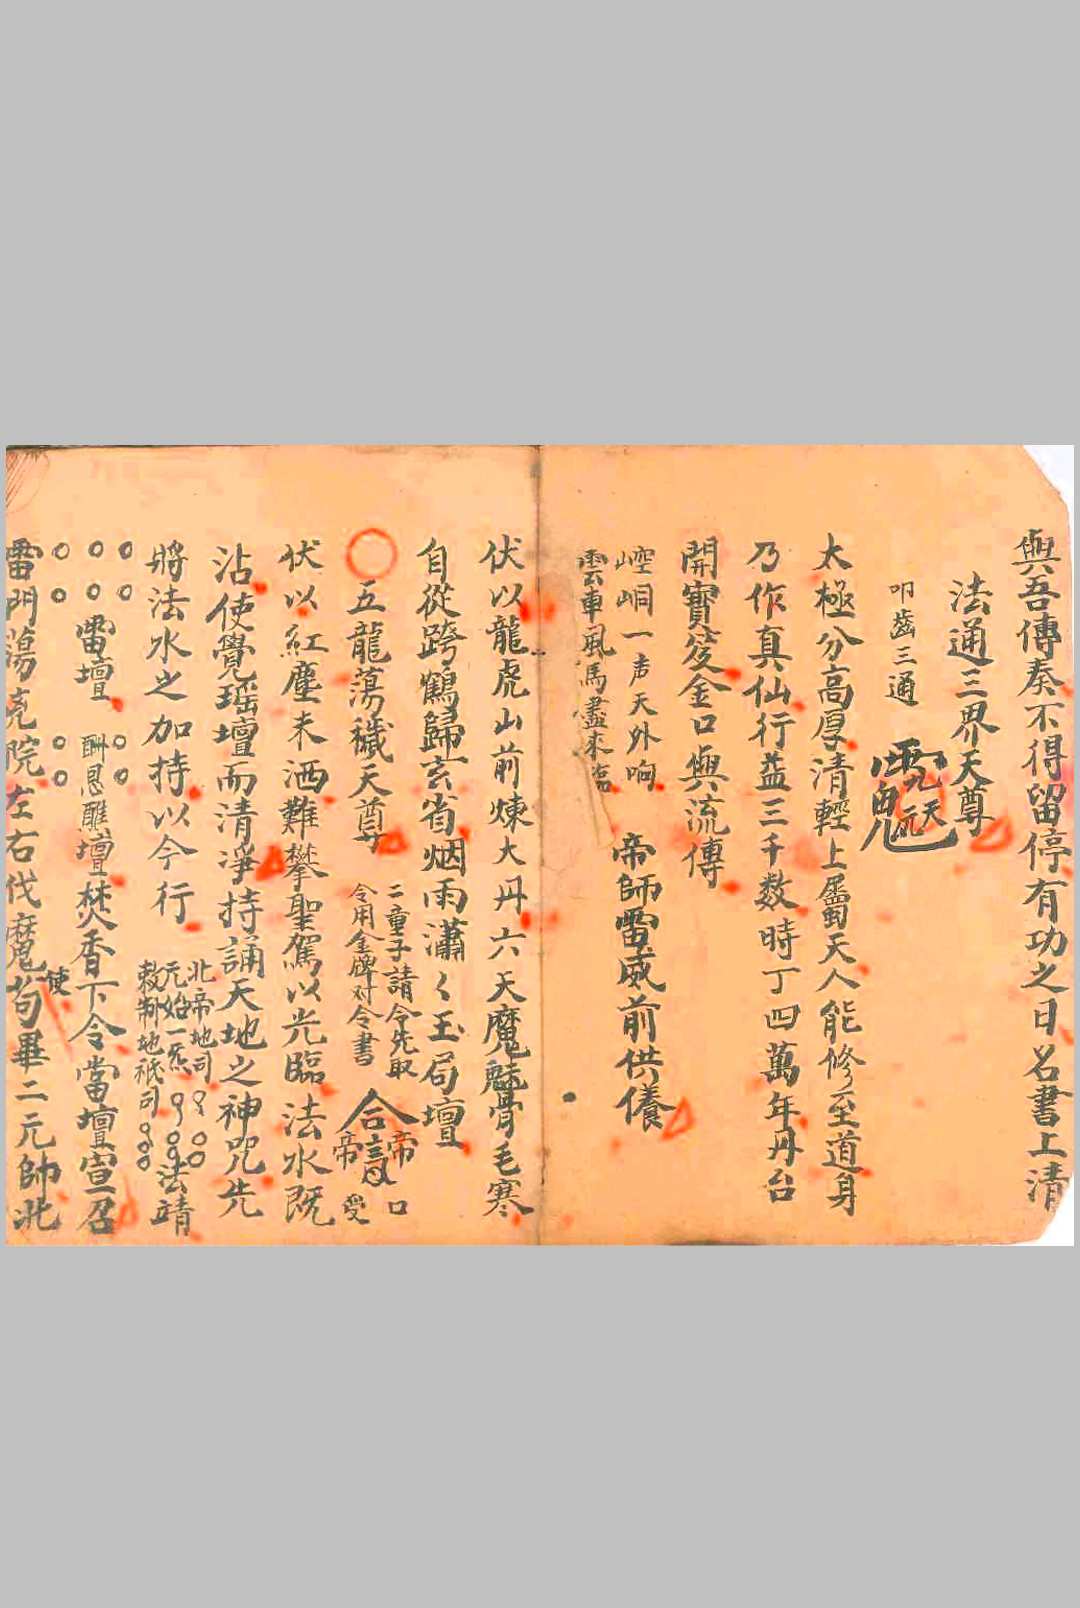 與吾傳奏不得留停有功之日名書上清
法通三界天尊
叩齒三通
太極分高厚清輕上屬天人能修至道身
乃作真仙行益三千数時丁四萬年丹台
開寶笈金口與流傳
崆峒一声天外响
雲車風馬盡來臨
帝師雷威前供養
伏以龍虎山前煉大丹六天魔魅骨毛寒
自從跨鶴歸玄省烟雨瀟〻玉局壇
五龍蕩穢天尊
二童子請令先取
令用金牌对令書
合 帝 帝 口 受
伏以紅塵未洒難攀聖駕以光臨法水既
沾使覺瑶壇而清淨持誦天地之神咒先
將法水之加持以今行
北帝地司
元始一炁
敕制地祇司
法靖
雷壇
酬恩醮壇
焚香下令當壇宣召
雷門蕩克院左右伐魔使苟畢二元帥北